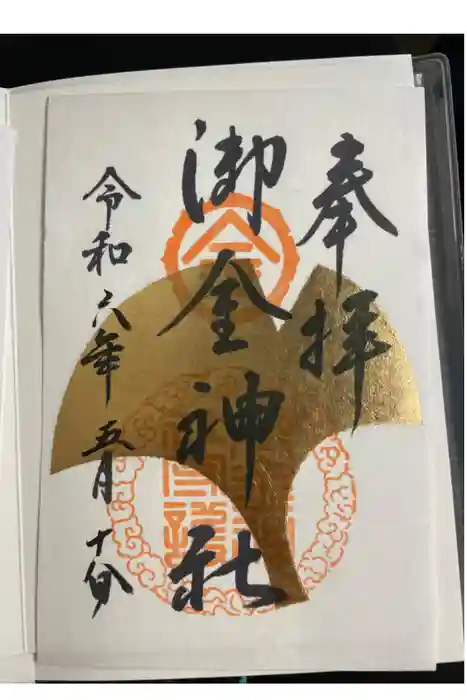 奉拝
御金神社
令和六年五月十八日